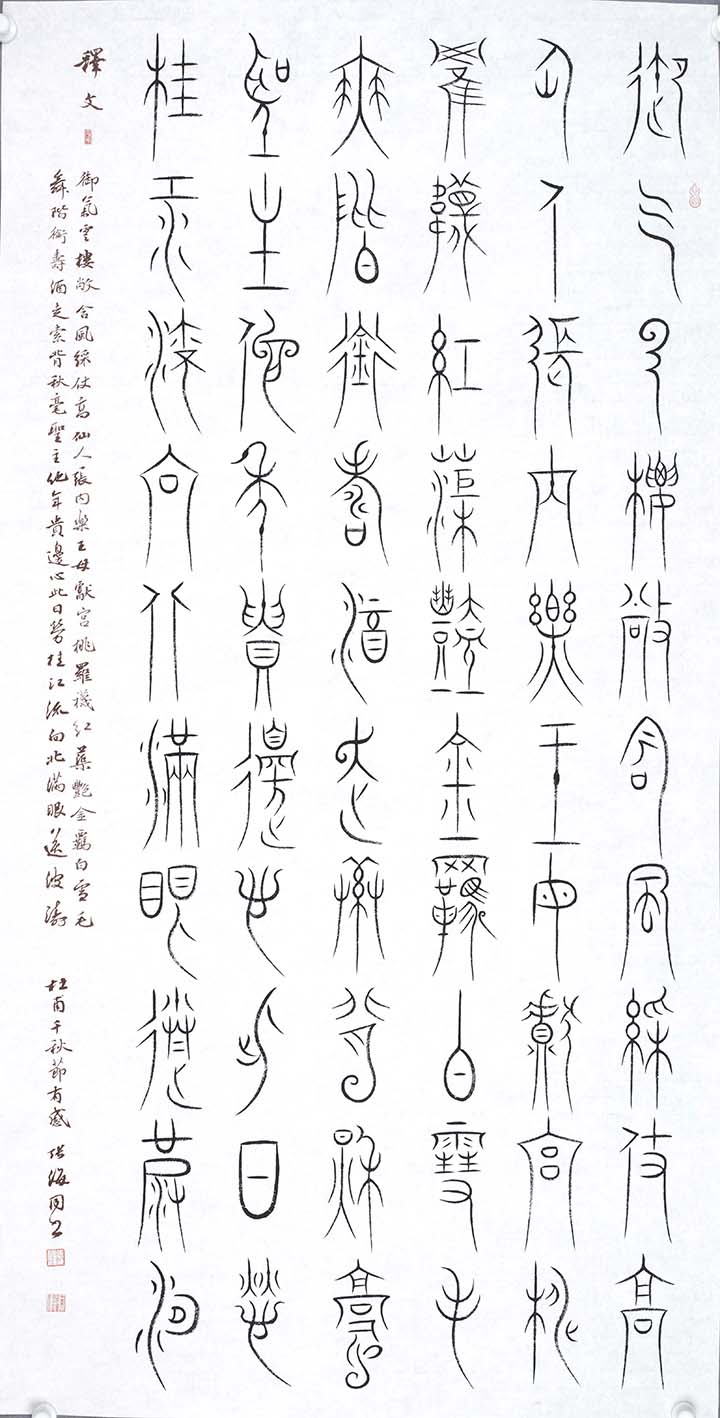 御气云樓敞含風綵仗高
仙人張内樂王母獻宫桃
羅韤紅蕖豔金羈白雪毛
舞階銜壽酒走索背秋毫
聖主他年貴邊心此日勞
桂江流向北滿眼送波濤
釋文
御氣雲樓敞含風綵仗高仙人張内樂王母獻宫桃羅襪紅蕖艷金羈白雪毛
舞階銜壽酒走索背秋毫聖主他年貴邊心此日勞桂江流向北滿眼送波濤 杜甫千秋節有感